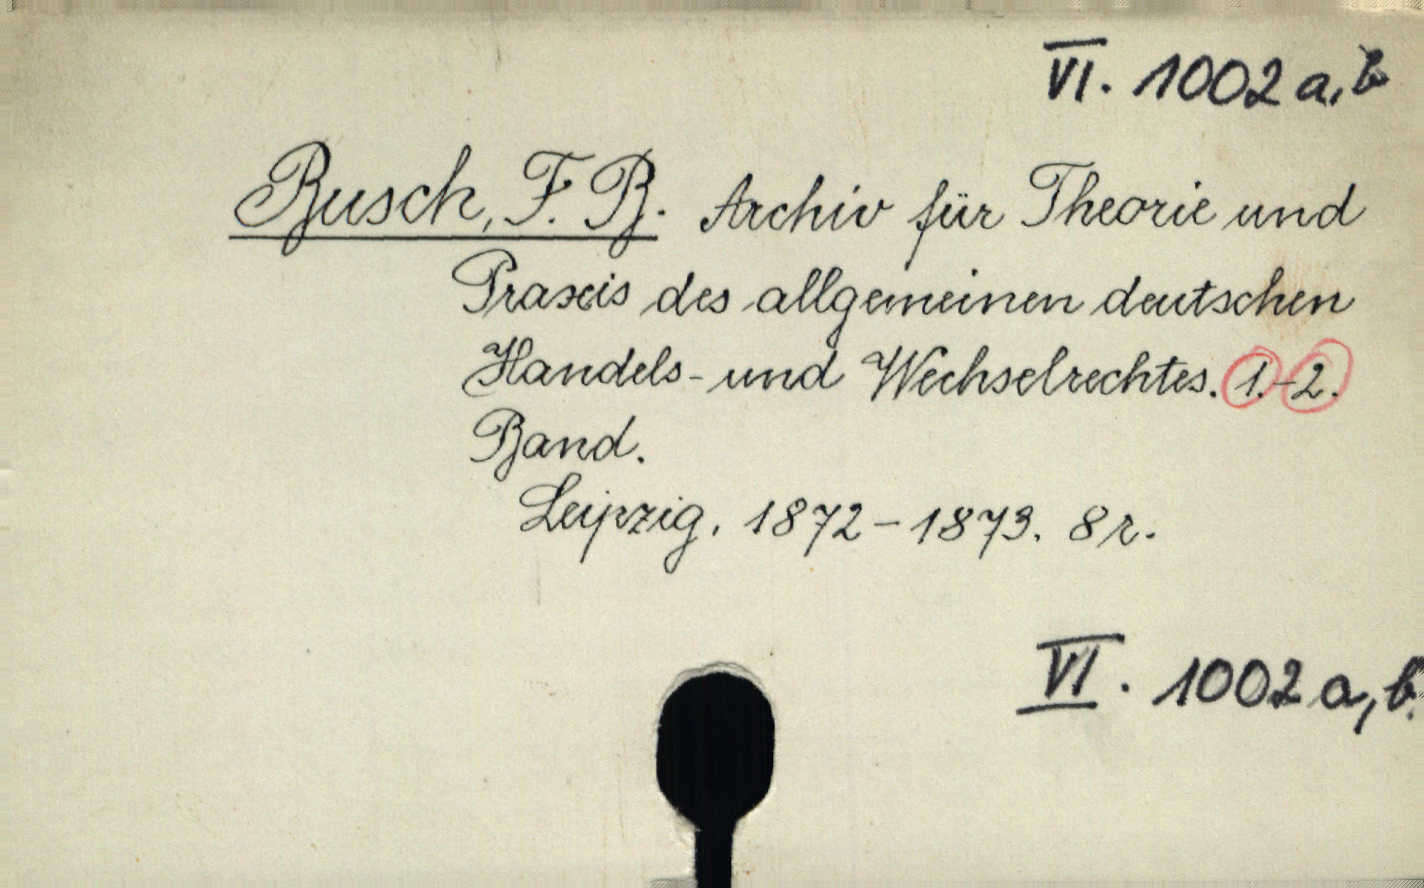 VI. 1002 a, b
Busch, F. B. Archiv für Theorie und
Praxis des allgemeinen deutschen
Handels- und Wechselrechtes. 1.-2.
Band.
Leipzig, 1872-1873. 8 r.
VI. 1002 a, b.